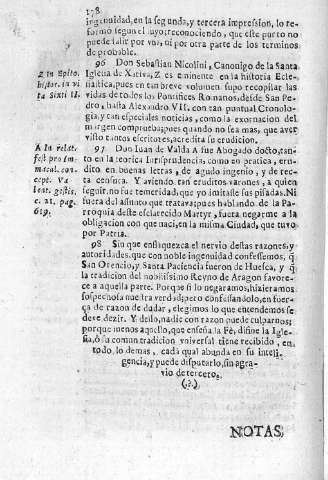 178
ingenuidad, en la segunda, y tercera impression, lo re-
formò segun el suyo; reconociendo, que este punto no
puede salir por vna, ni por otra parte de los terminos
de probable.
96 Don Sebastian Nicolini, Canonigo de la Santa
Iglesia de Xativa, Z es eminente en la historia Ecle-
siastica, pues en tan breve volumen supo recopilar las
vidas de todos los Pontifices Romanos, desde San Pe-
dro, hasta Alexandro VII. con tan puntual Cronolo-
gia, y tan especiales noticias, como la exornacion del
margen comprueba; pues quando no sea mas, que aver
visto tantos escritores, acredita su erudicion.
Z In Epito.
histor. in vi
ta Sixti II.
97 Don Juan de Valda A fue Abogado docto, tan-
to en la teorica Iurisprudencia, como en practica, eru-
dito en buenas letras, de agudo ingenio, y de rec-
ta censura. Y aviendo tan eruditos varones, a quien
seguir, no fue temeridad, que yo imitasse sus pisadas. Ni
fuera del assunto que tratava; pues hablando de la Pa-
rroquia deste esclarecido Martyr, fuera negarme a la
obligacion con que naci, en la misma Ciudad, que tuvo
por Patria.
A In relat.
fest. pro im
macul. con
cept. Va
lent. gestis,
c. 21. pag.
619.
98 Sin que enflaquezca el nervio destas razones, y
autoridades, que con noble ingenuidad confessemos, q̃
San Orencio, y Santa Paciencia fueron de Huesca, y q̃
la tradicion del nobilissimo Reyno de Aragon favore-
ce a aquella parte. Porque si lo negaramos, hizieramos
sospechosa nuestra verdad; pero confessandolo, en fuer-
ça de razon de dudar, elegimos lo que entendemos se
deve dezir. Y dello, nadie con razon puede culparnos;
porque menos aquello, que enseña la Fè, difine la Igle-
sia, ò su comun tradicion vniversal tiene recibido, en
todo lo demas, cada qual abunda en su inteli-
gencia, y puede disputarlo, sin agra-
vio de tercero.
(.?.)
NOTAS,